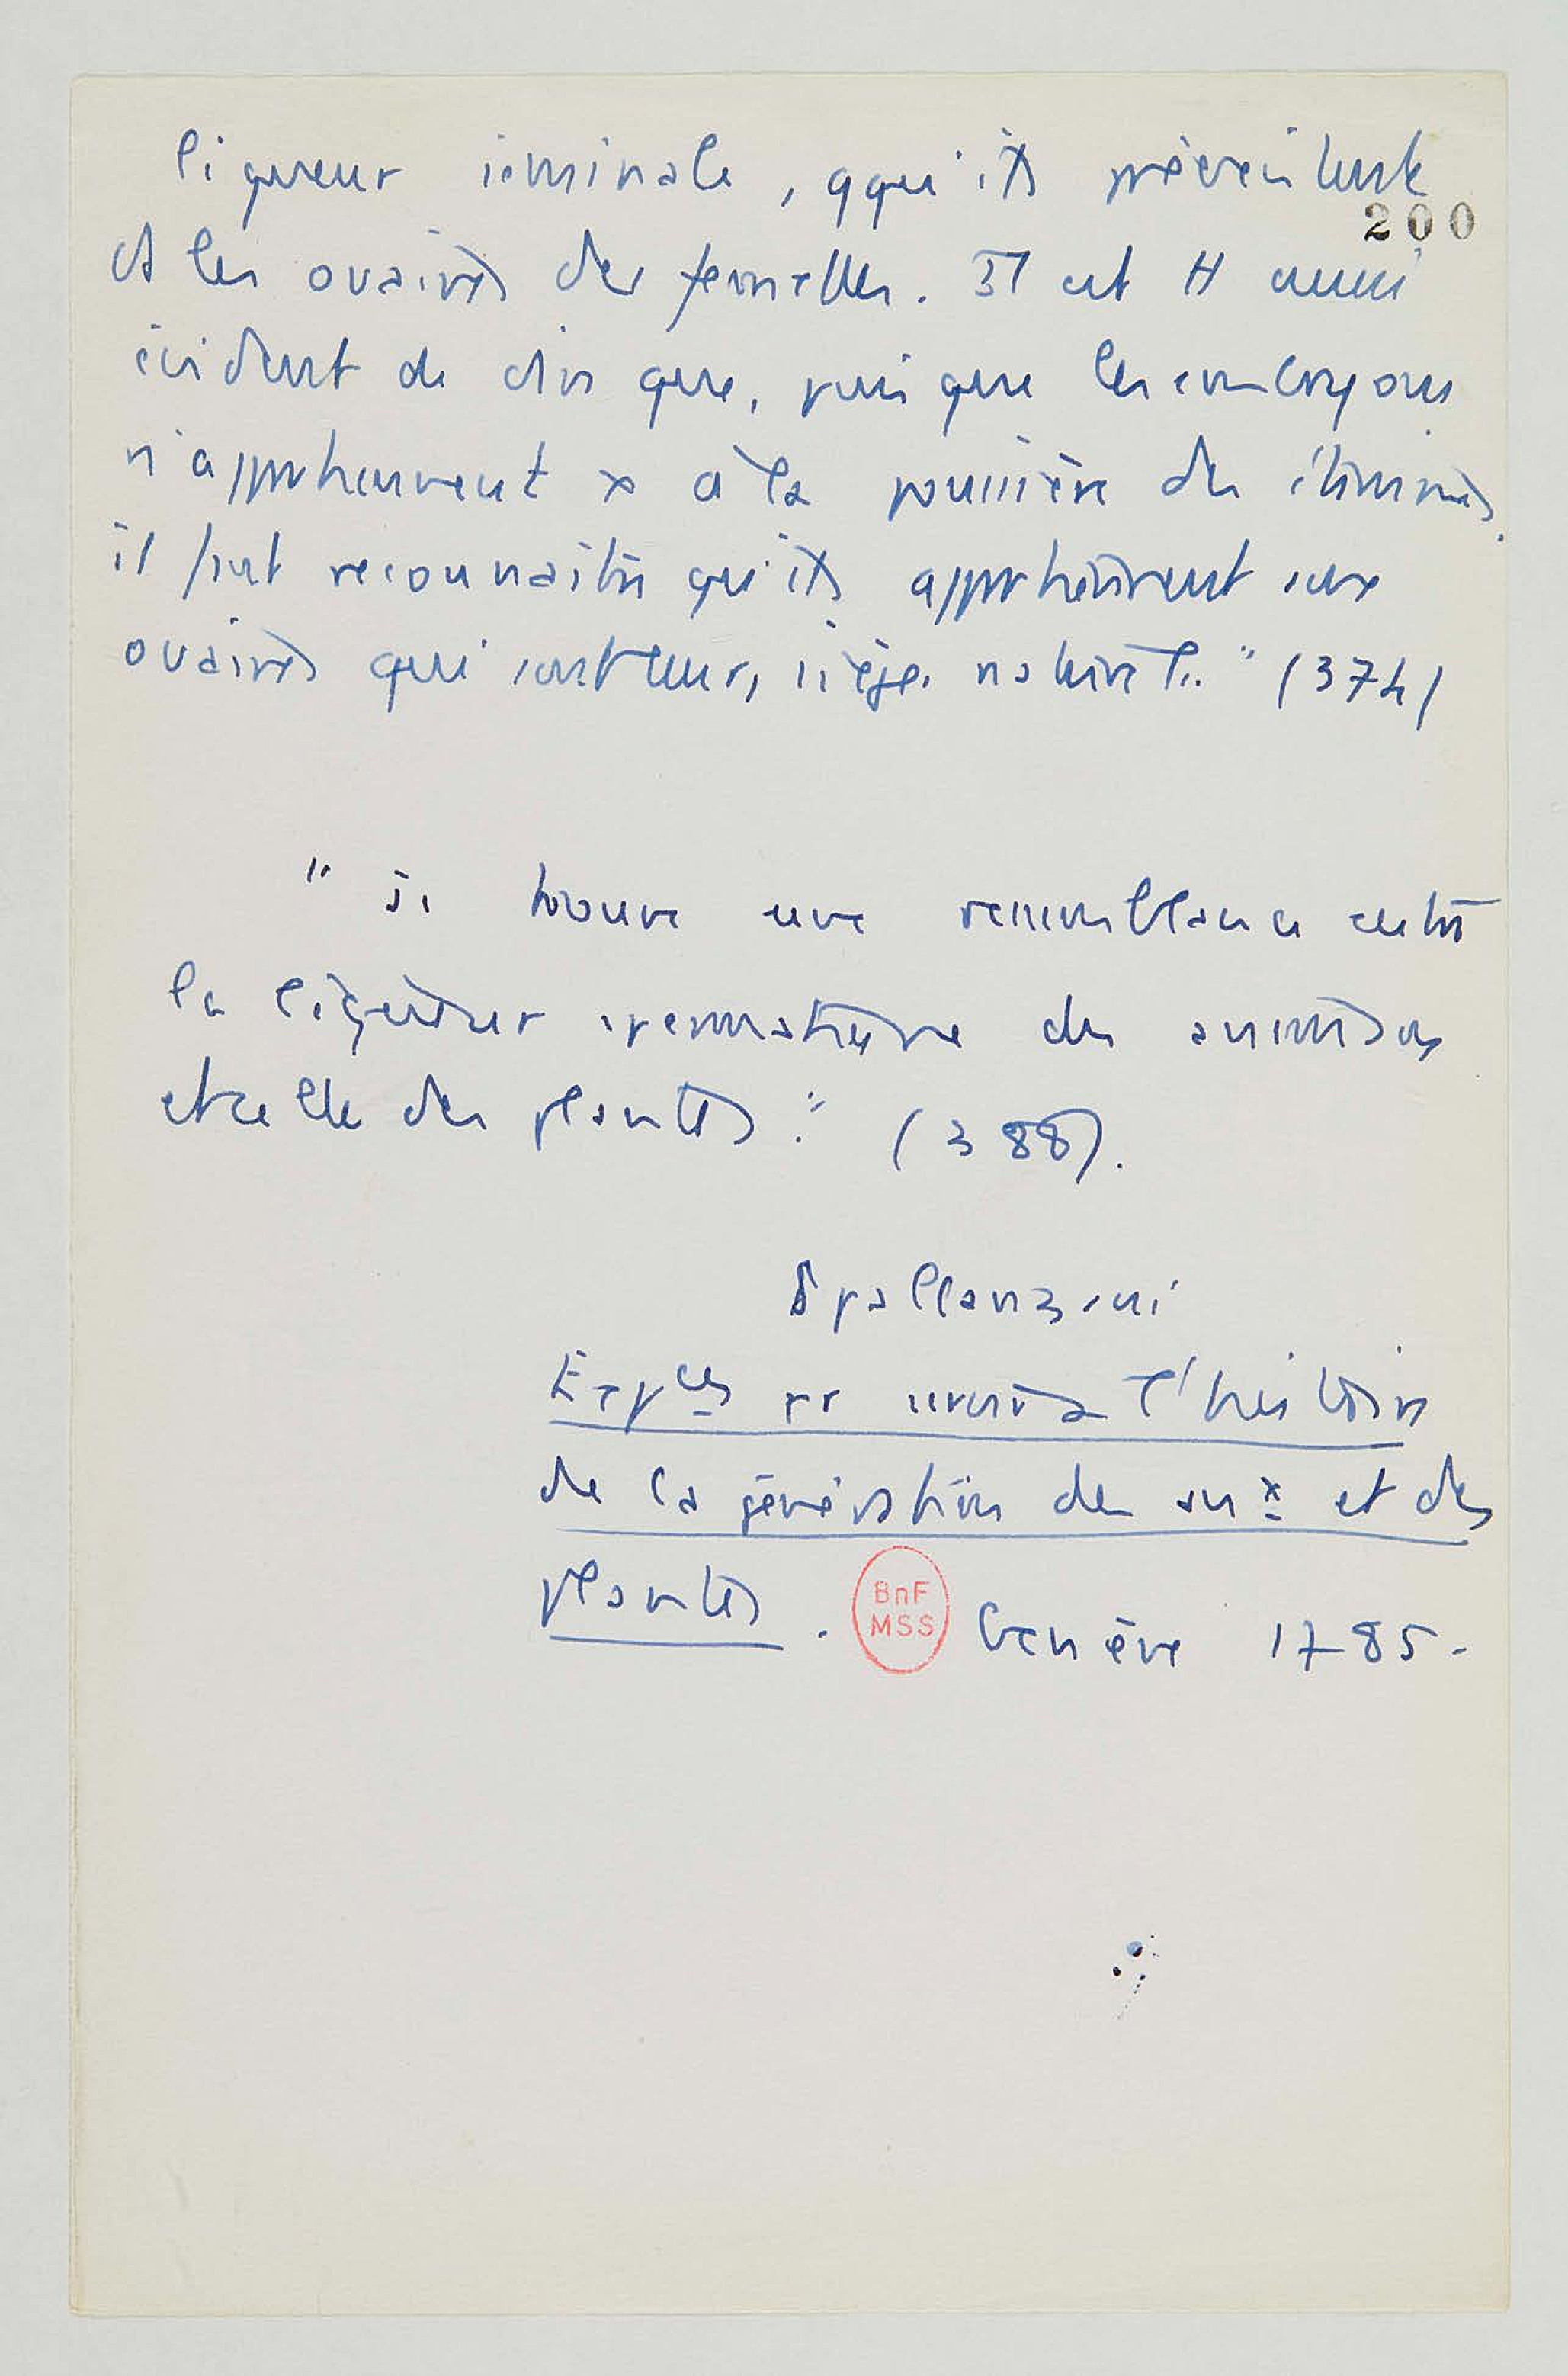 liqueur séminale, qqu'ils préexistent
ds les ovaires des femelles. Il est tt aussi
évident de dire que, puisque les embryons
n'appartiennent x à la poussière des étamines,
il faut reconnaître qu'ils appartiennent aux
ovaires qui sont leurs sièges naturels." (374)
200
"je trouve une ressemblance entre
la liqueur spermatique des animaux
et celle des plantes." (388).
Spallanzani
Expces pr servir à l'histoire
de la génération des anx et des
plantes. Genève 1785.
BnF
MSS